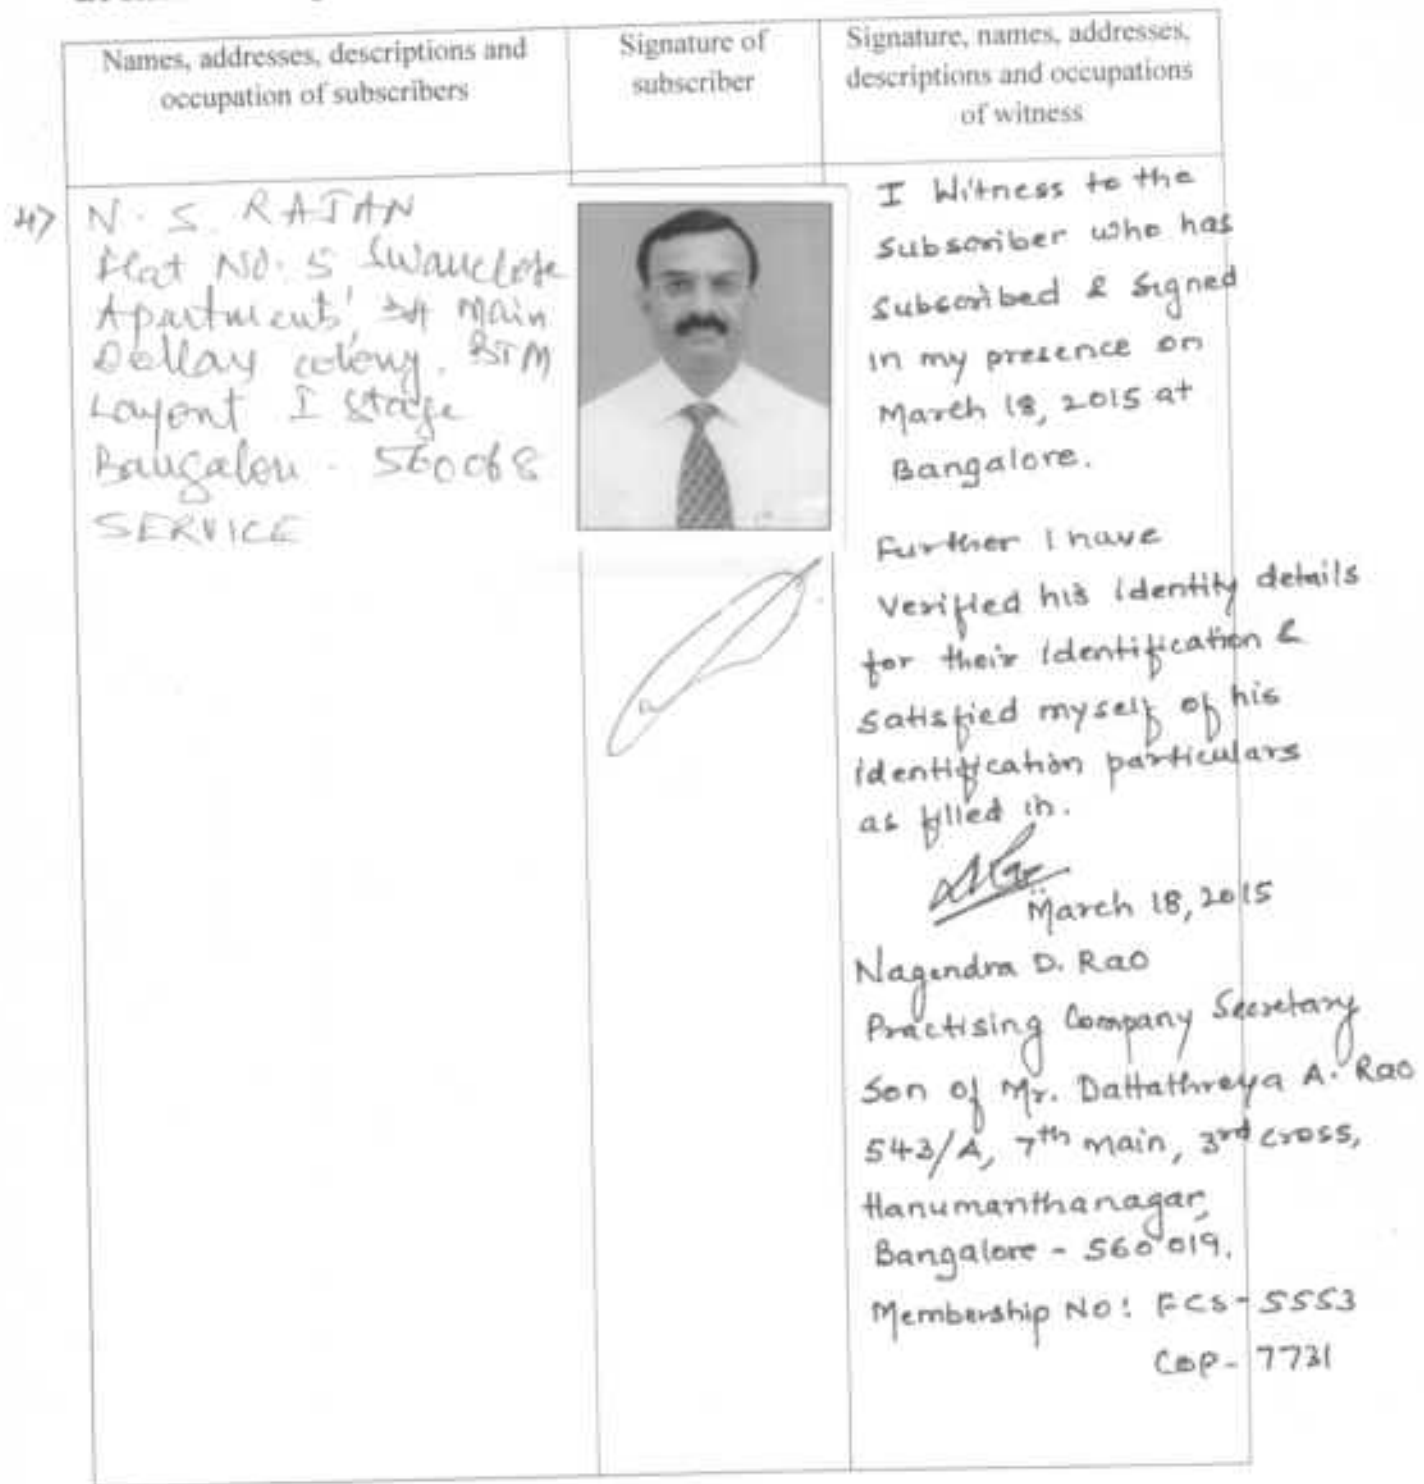 Names, addresses, descriptions and
occupation of subscribers
Signature of
subscriber
Signature, names, addresses,
descriptions and occupations
of witness
4)
N. S. RAJAN
Flat NO. 5
Apartment, Main
colony. BTM
Layout I Stage
Bangalore - 560068
SERVICE
I Witness to the
Subscriber who has
Subscribed & Signed
in my presence on
March 18, 2015 at
Bangalore.
Further I have
Verified his identity details
for their identification &
satisfied myself of his
identification particulars
as filled in.
March 18, 2015
Nagendra D. Rao
Practising Company Secretary
Son of Mr. Dattathreya A. Rao
543/A, 7th main, 3rd cross,
Hanumanthanagar,
Bangalore - 560 019.
Membership No: FCS-5553
COP-7731